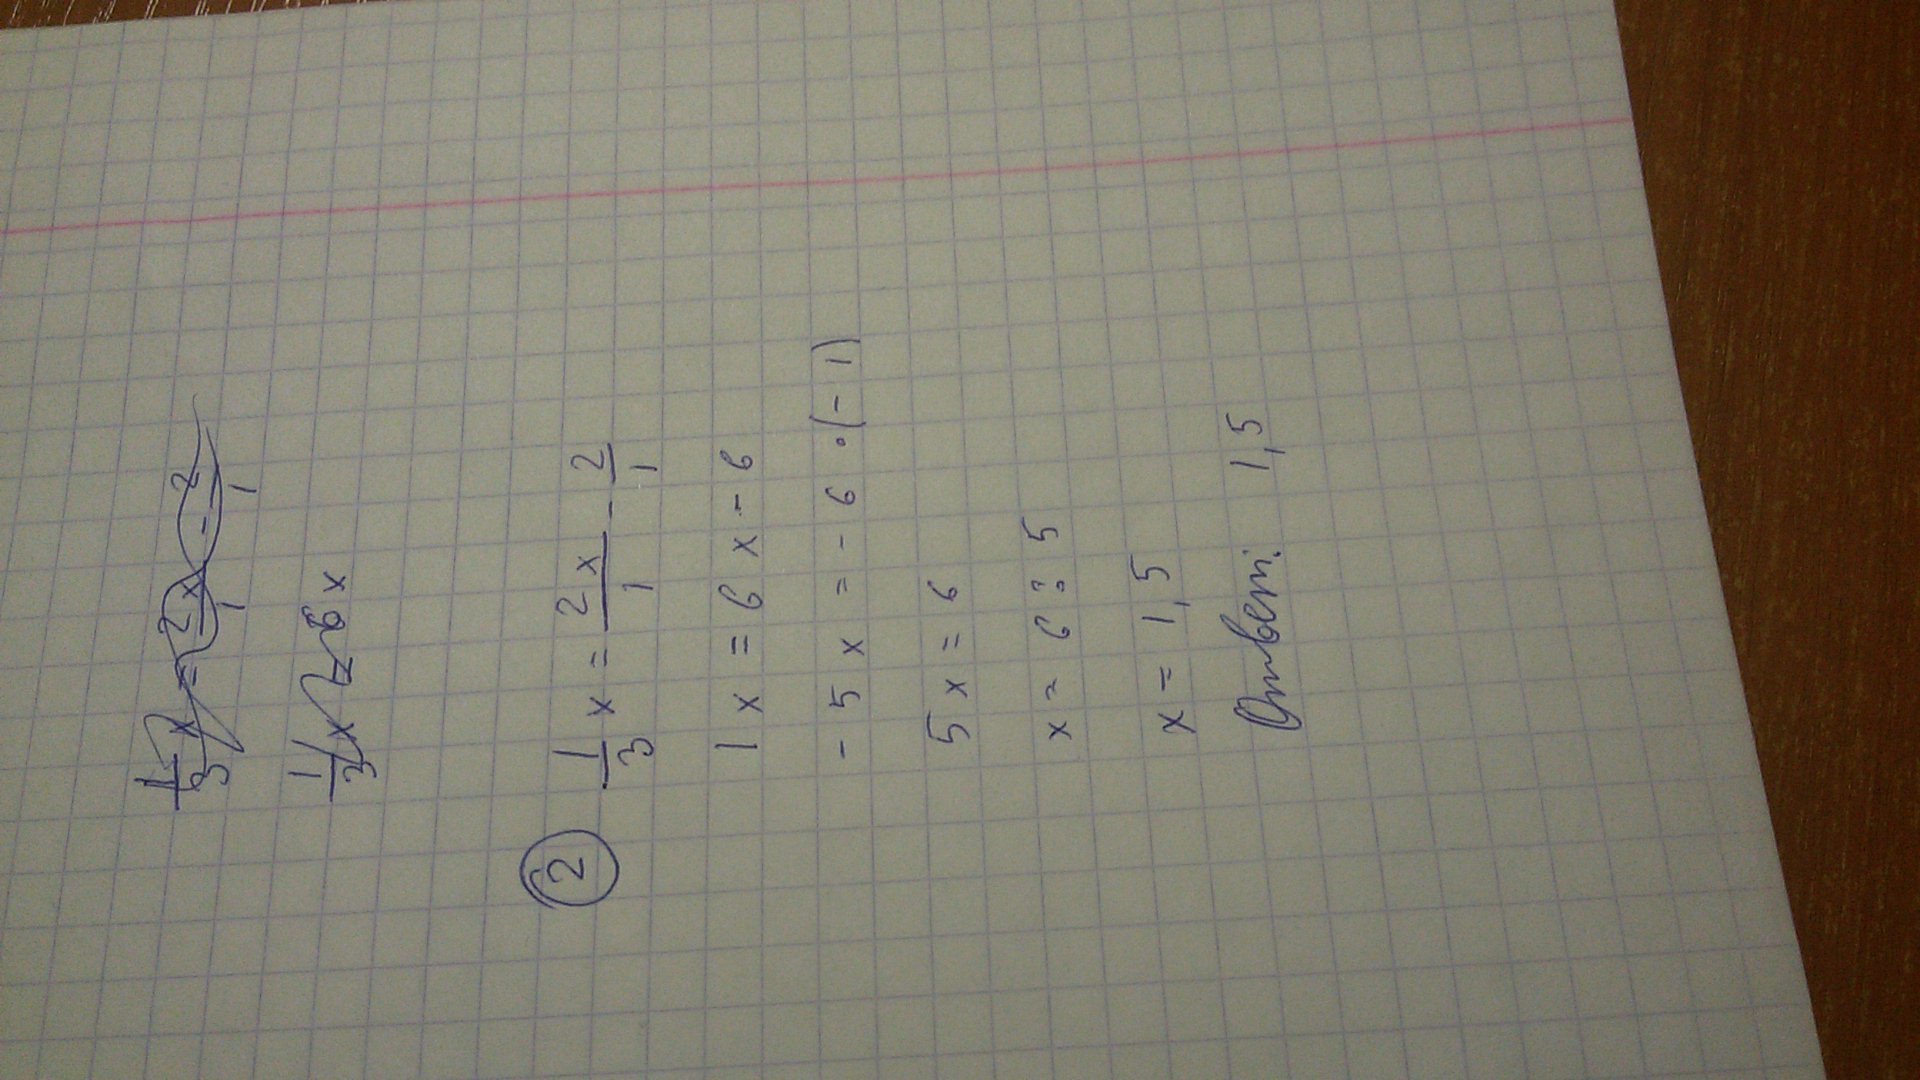 1/3 x = 2x/1 - 2/1
1/3 x = 6x
② 1/3 x = 2x/1 - 2/1
1x = 6x - 6
-5x = -6 · (-1)
5x = 6
x = 6 : 5
x = 1,5
Ответ: 1,5